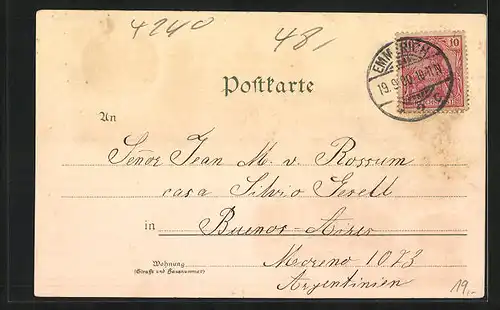 4240
48,-
EMMERICH
19.9.00. 10-11 N
10
Postkarte
An
Señor Jean M. v. Rossum
casa Silvio Gesell
in Buenos-Aires
Moreno 1073
Wohnung
(Straße und Hausnummer)
Argentinien
19,-